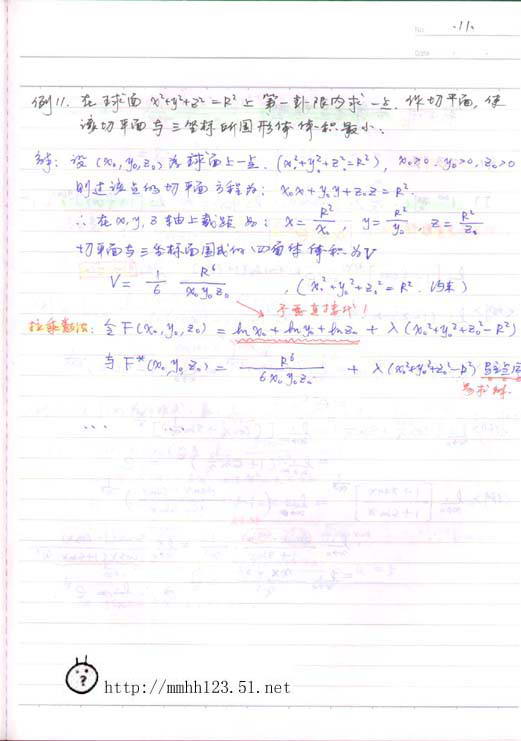 No. .11.
Date
例11. 在球面 x²+y²+z²=R² 上第一卦限内求一点. 作切平面, 使
该切平面与三坐标所围形体体积最小.
解: 设 (x₀, y₀, z₀) 为球面上一点. (x₀²+y₀²+z₀²=R²), x₀>0. y₀>0, z₀>0
则过该点的切平面方程为: x₀x+y₀y+z₀z=R².
∴ 在 x, y, z 轴上截距为: x = R²/x₀, y = R²/y₀ z = R²/z₀
切平面与三坐标面围成的四面体体积为V
V = 1/6 R⁶/x₀y₀z₀ , (x₀²+y₀²+z₀²=R². 约束)
不要直接代!
拉乘数法: 令 F(x₀, y₀, z₀) = ln x₀ + ln y₀ + ln z₀ + λ(x₀²+y₀²+z₀²-R²)
与 F*(x₀, y₀, z₀) = R⁶/6x₀y₀z₀ + λ(x₀²+y₀²+z₀²-R²) 驻点同
易求解.
...
http://mmhh123.51.net